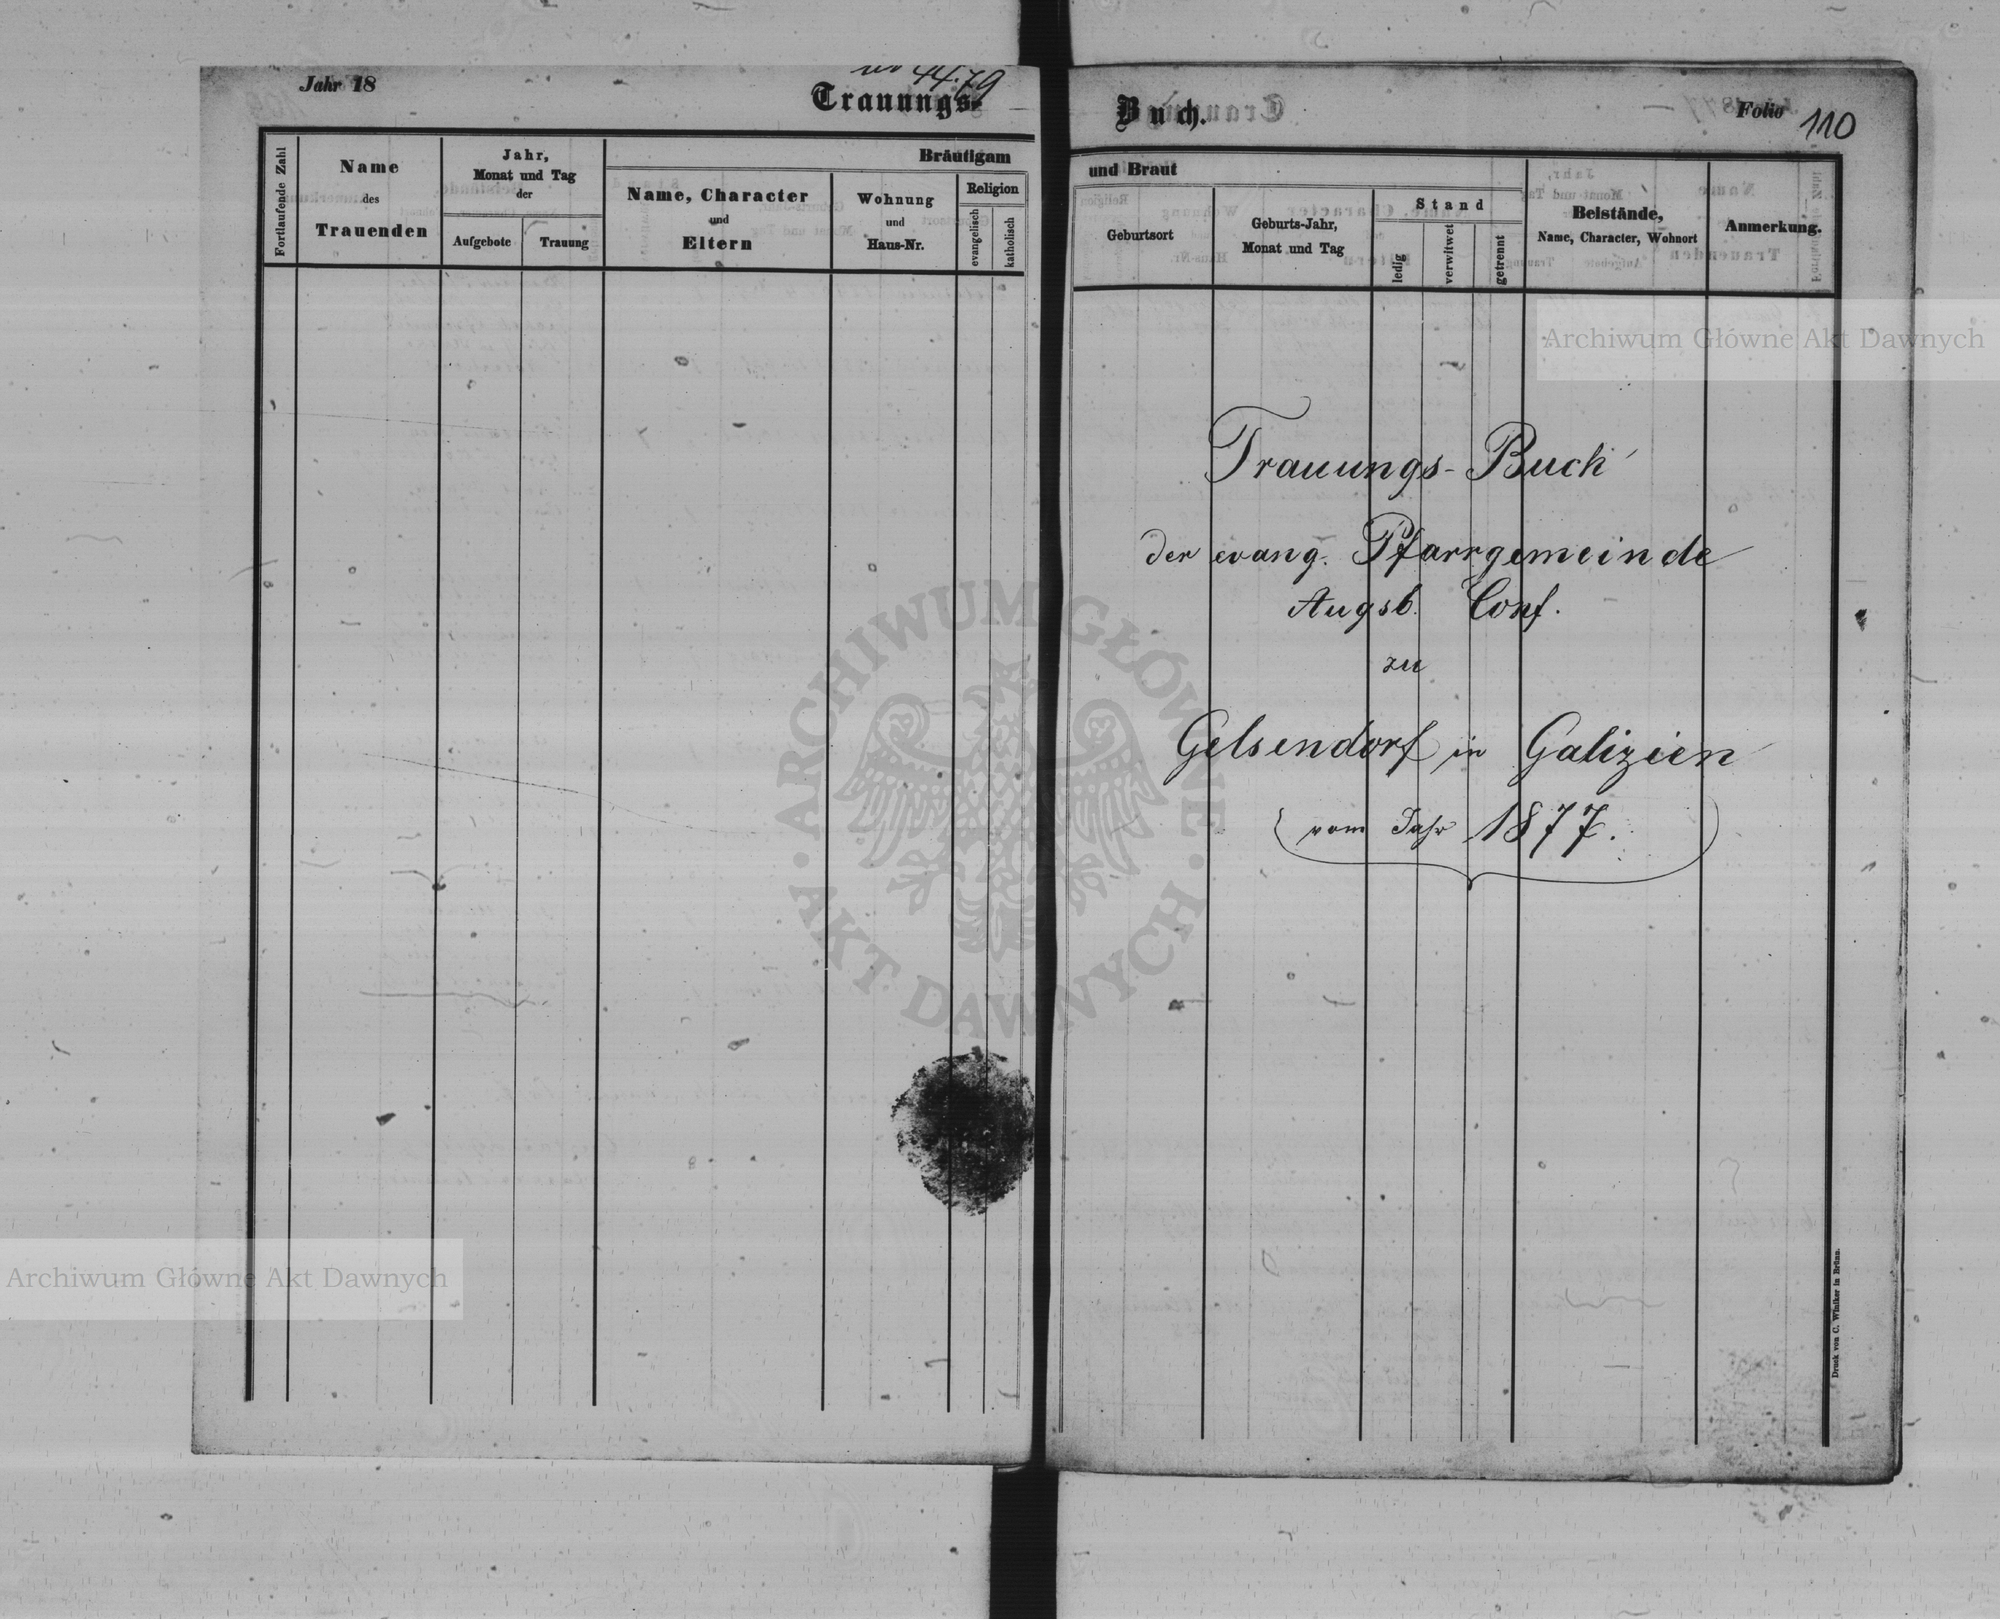 Jahr 18
44.79
Trauungs-
Fortlaufende Zahl
Name
des
Trauenden
Jahr,
Monat und Tag
der
Aufgebote
Trauung
Bräutigam
Name, Character
und
Eltern
Wohnung
und
Haus-Nr.
Religion
evangelisch
katholisch
Buch.
Folio 110
und Braut
Geburtsort
Geburts-Jahr,
Monat und Tag
Stand
ledig
verwitwet
getrennt
Beistände,
Name, Character, Wohnort
Anmerkung.
Trauungs-Buch
der evang. Pfarrgemeinde
Augsb. Conf.
zu
Gelsendorf in Galizien
vom Jahr 1877.
Druck von C. Winiker in Brünn.
Archiwum Główne Akt Dawnych
ARCHIWUM GŁÓWNE
AKT DAWNYCH
Archiwum Główne Akt Dawnych